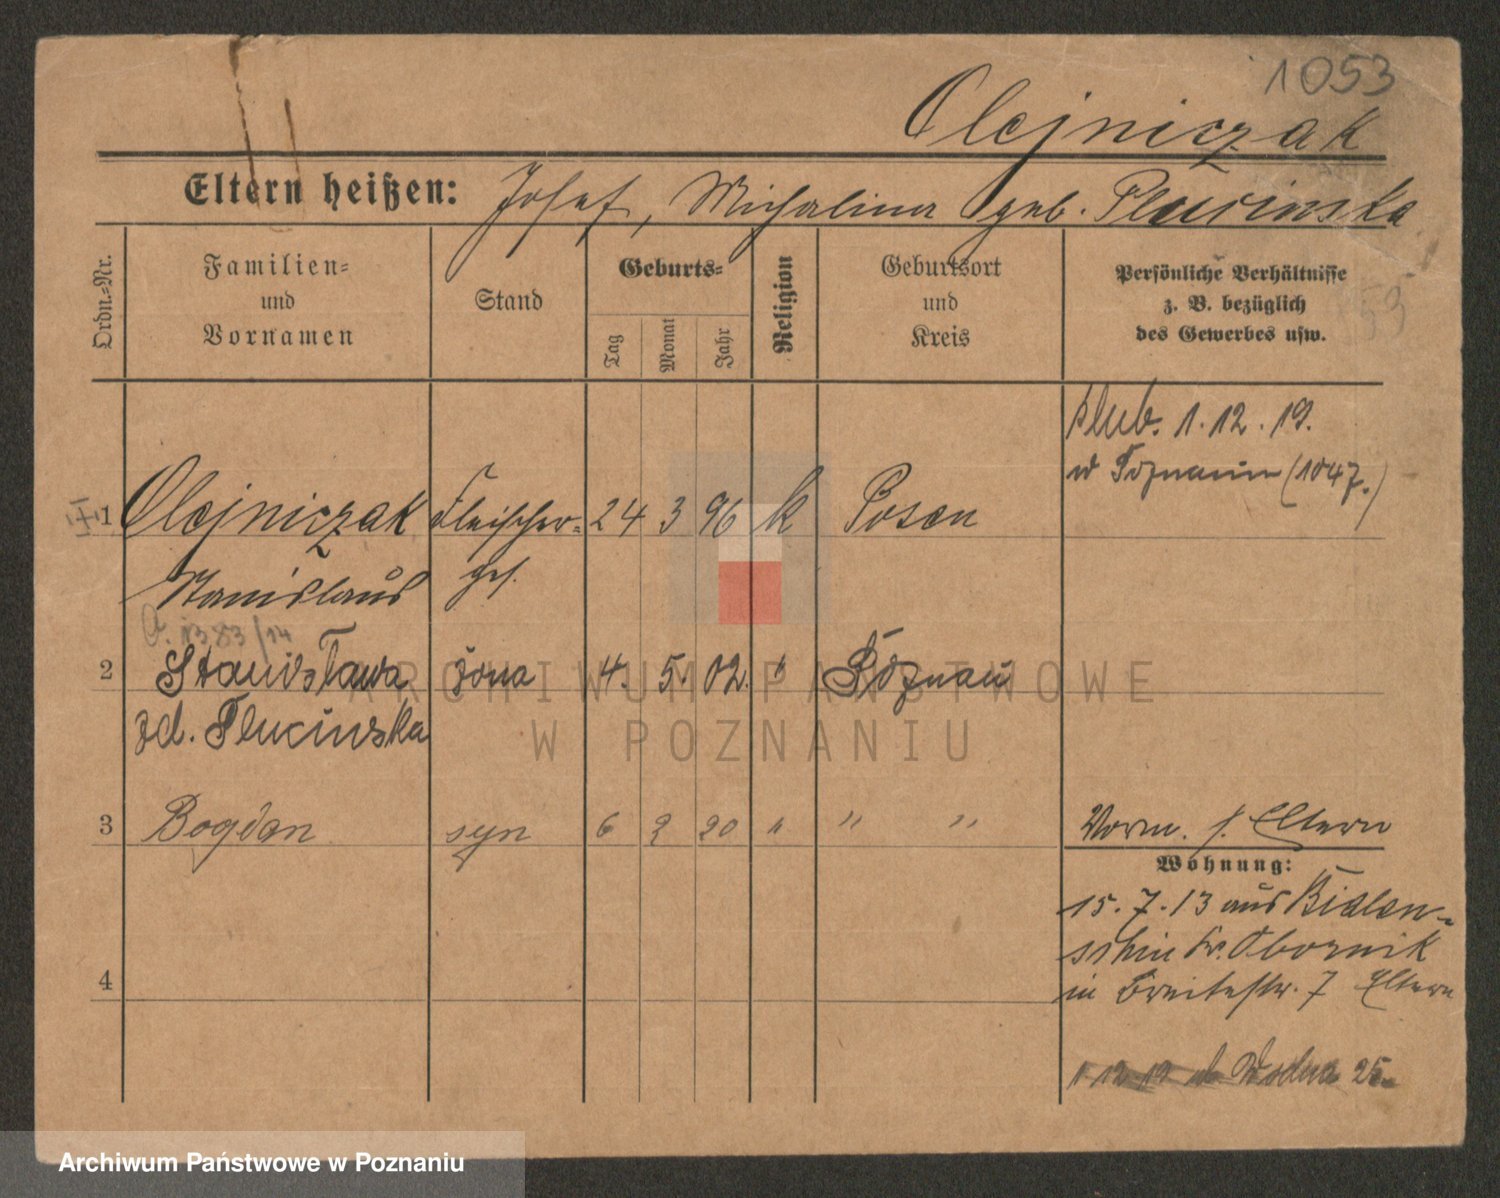 1053
Olejniczak
Eltern heißen: Josef, Michalina geb. Plucinska
Ordn.-Nr.
Familien-
und
Vornamen
Stand
Geburts-
Tag
Monat
Jahr
Religion
Geburtsort
und
Kreis
Persönliche Verhältnisse
z. B. bezüglich
des Gewerbes usw.
ślub. 1.12.19.
w Poznaniu (1047.)
1 Olejniczak Fleischer- 24 3 96 k Posen
Stanislaus ges.
A. 1383/14
2 Stanisława żona 4. 5. 02. " Poznań
zd. Plucinska
3 Bogdan syn 6 2 20 " " "
Vorm. s. Eltern
Wohnung:
15.7.13 aus Bialen-
schin Kr. Obornik
4
in Breitestr. 7 Eltern
1 12 19 Wodna 25
ARCHIWUM PAŃSTWOWE
W POZNANIU
Archiwum Państwowe w Poznaniu